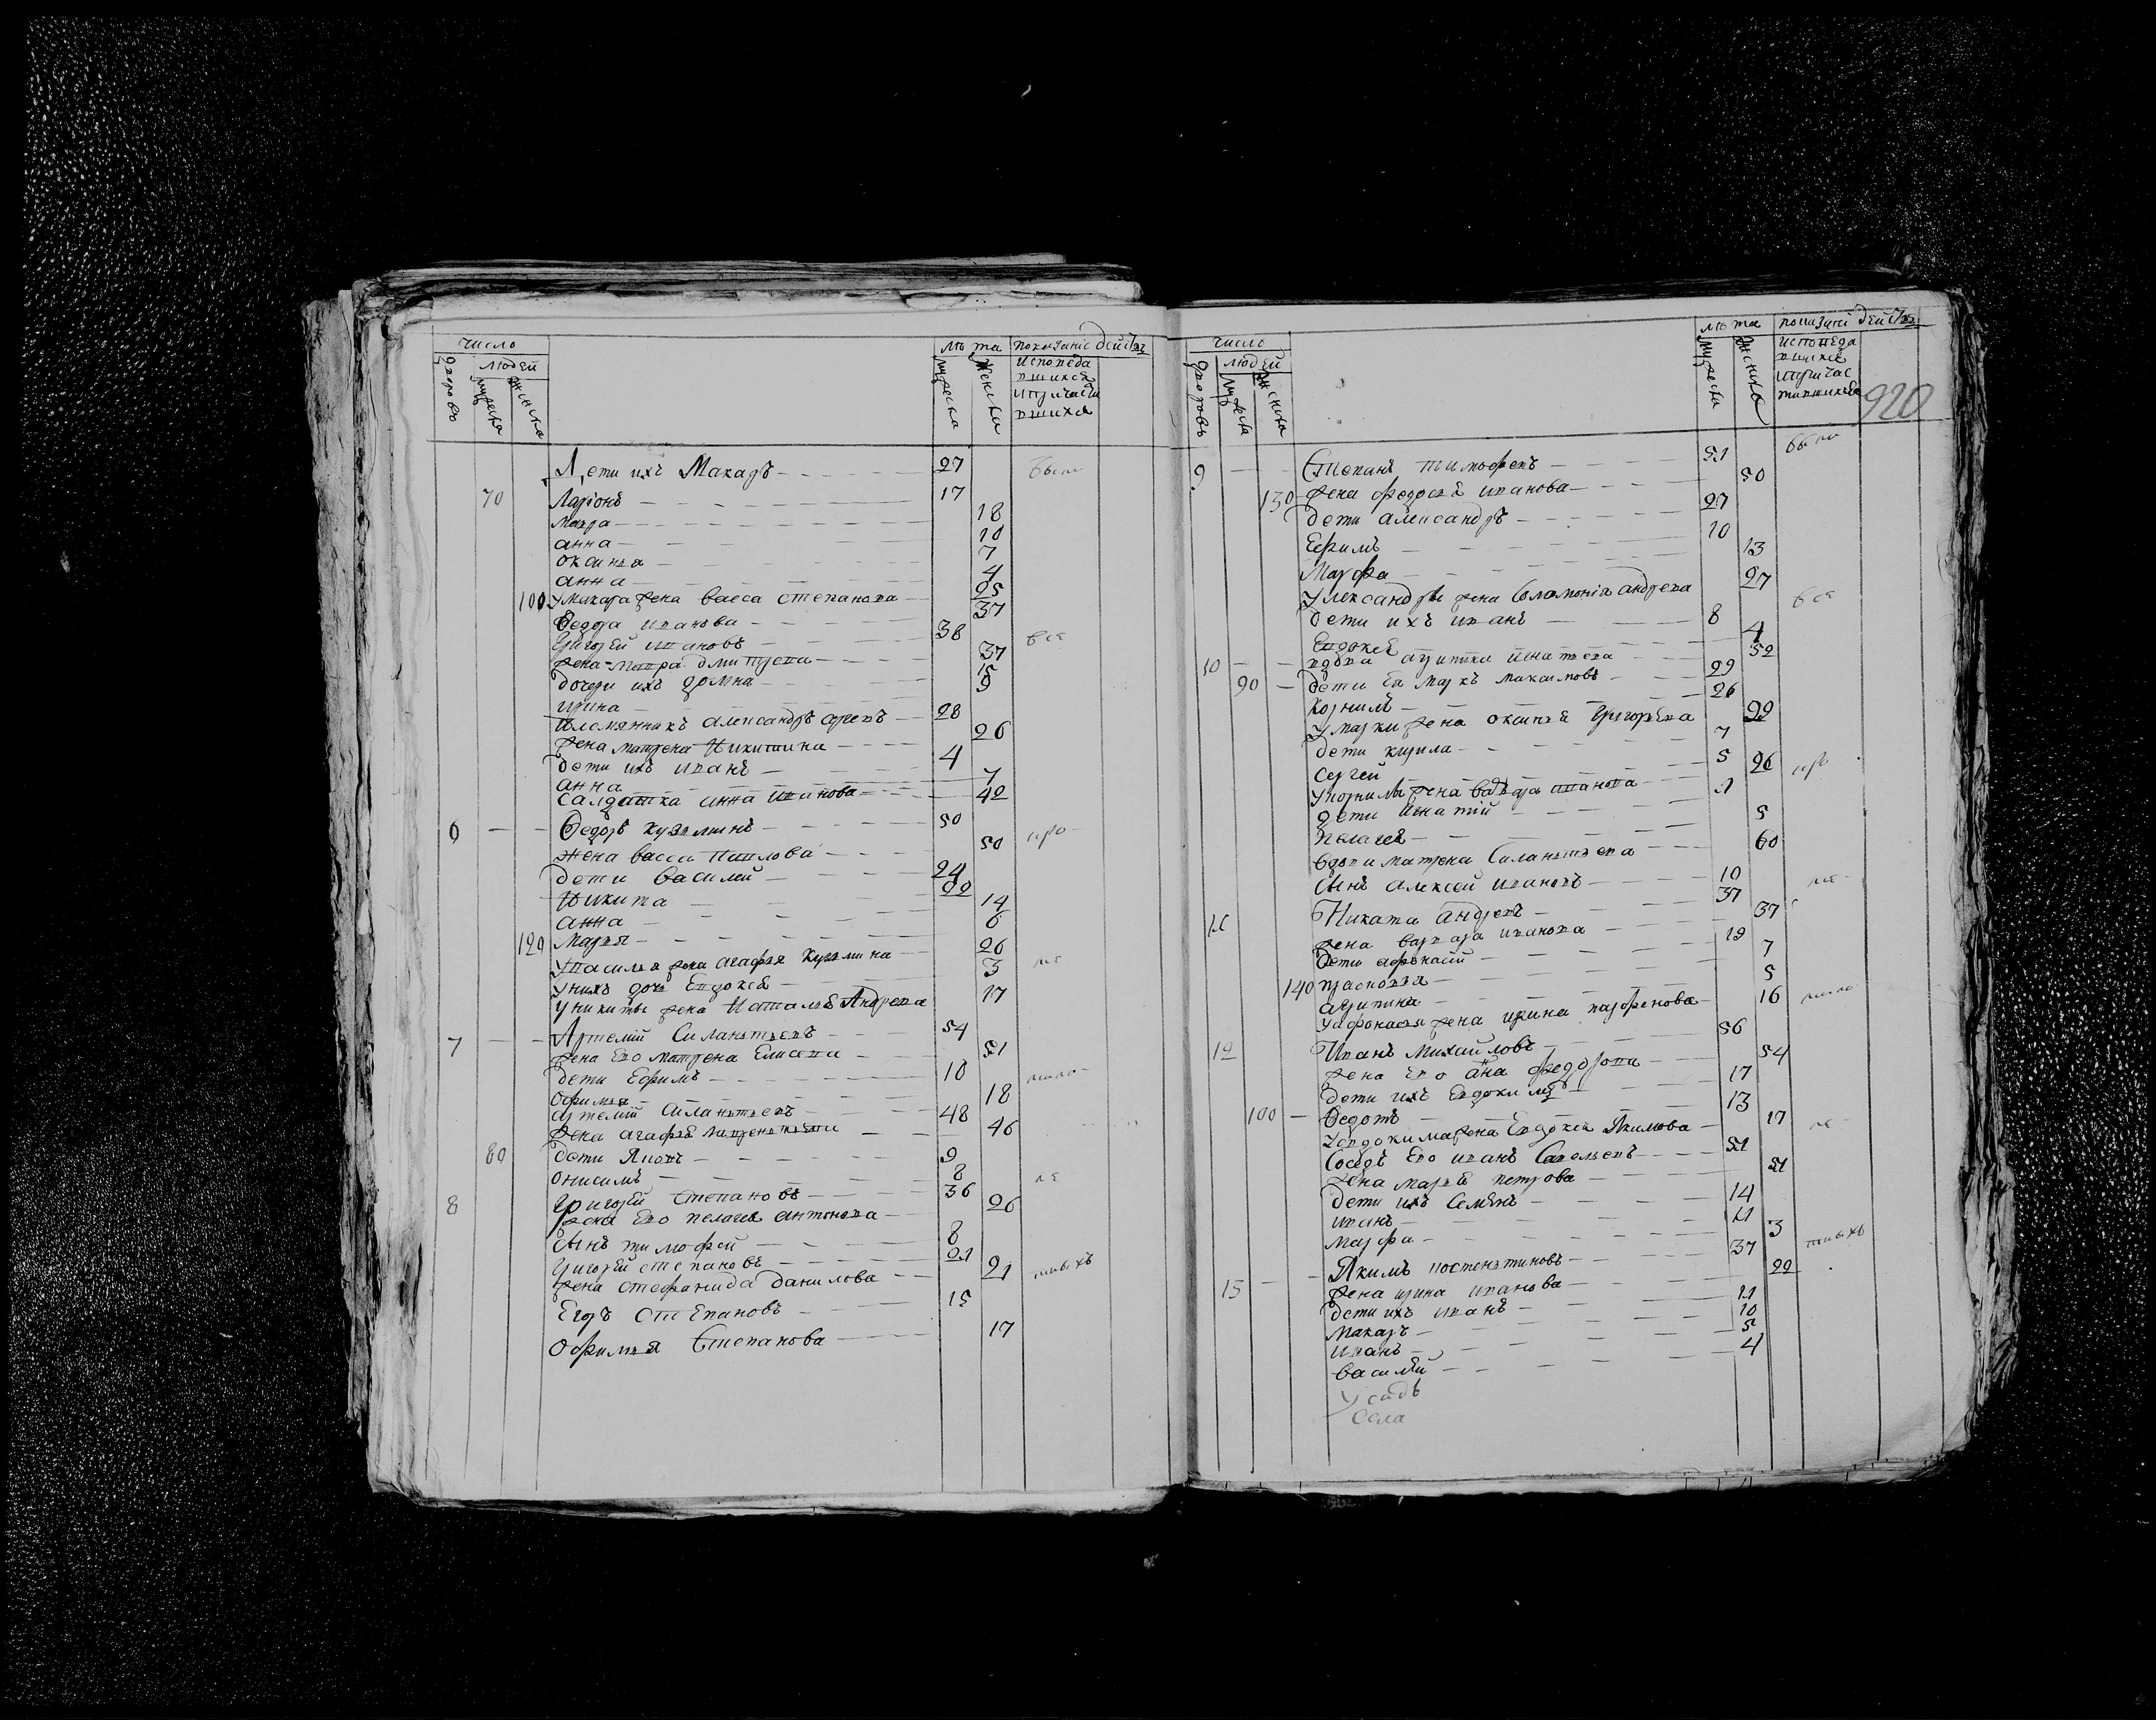 число
дворовъ
людей
мужеска
женска
лѣта
мужеска
женска
показание действъ
исповеда
вшихся
и причасти
вшихся
Дети ихъ Макаръ 27 были
70 Ларіонъ 17
Мавра 18
анна 10
оксинья 7
анна 4
100 у макара жена Васса степанова 25
Федора иванова 37
Григорей ивановъ 38 вся
жена матра дмитрева 37
дочери ихъ домна 15
ирина 9
племянникъ александръ ареевъ 28
жена матрена Никитина 26
дети ихъ иванъ 4
анна 7
салдатка анна иванова 42
6 Федоръ кузминъ 50 иро
жена васса павлова 50
дети василей 24
Никита 22
анна 14
120 Марья 6
у василья жена агафья кузмина 26
у нихъ дочь Евдокея 3 ме
у никиты жена Наталья Андрева 17
7 Артемій Силантьевъ 54
жена Его матрена Елисева 51
дети Ефимъ 10
офимья 18
артемій силантьевъ 48
жена агафья лаврентьева 46
80 дети Яковъ 9
онисимъ 8
8 Григорей степановъ 36
жена Его пелагея антонова 26
сынъ тимофей 8
Григорей степановъ 21
жена стефанида данилова 21
Егоръ стЕпановъ 15
Офимья Степанова 17
число
дворовъ
людей
мужеска
женска
лѣта
мужеска
женска
показание действъ
исповеда
вшихся
и причас
тившихся
920
9 Степанъ тимофевъ 51 были
130 жена федосья иванова 50
дети александръ 27
Ефимъ 10
Марфа 13
у александры жена Соломонія андрева 27
дети ихъ иванъ 8 вся
Евдокея 4
10 вдова акулина игнатева 52
90 дети Ея маркъ максимовъ 29
корнилъ 26
у марки жена оксинья Григорева 29
дети кирила 7
Сергей 5
у корнилы жена варвара иванова 26
дети игнатій 1
пелагея 5
вдова матрена Силантьева 60
сынъ алексей ивановъ 10
11 Никита андревъ 37
жена варвара иванова 37
дети афонасий 19
140 прасковья 7
акулина 5
у афонасья жена ирина парфенова 16
12 Иванъ Михайловъ 56
жена Его анна федорова 54
дети ихъ Евдокимъ 17
100 Федотъ 13
у евдокима жена Евдокея Якимова 17
Соседъ Его иванъ Савельевъ 51
жена марья петрова 51
дети ихъ Семенъ 14
иванъ 11
марфа 3
13 Якимъ костентиновъ 37
жена ирина иванова 29
дети ихъ иванъ 11
макаръ 10
иванъ 5
василей 4
Усадъ
села